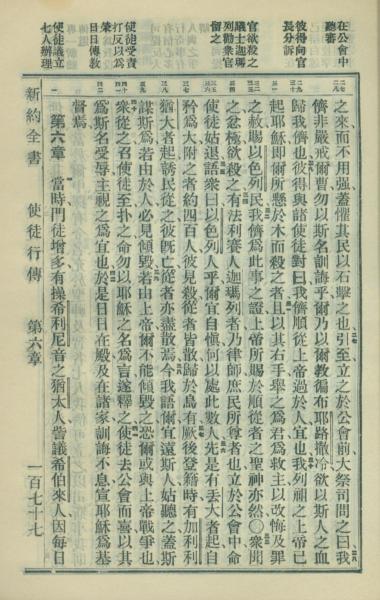 在公會中
聽審
彼得向官
長分訴
官欲殺之
議士迦瑪
列勸衆官
留之
使徒受責
打反以為
榮
日日傳教
使徒議立
七人辦理
之來而不用强蓋懼其民以石擊之也引至立之於公會前大祭司問之曰我
儕非嚴戒爾曹勿以斯名訓誨乎爾乃以爾教徧布耶路撒冷欲以斯人之血
歸我儕也彼得與諸使徒對曰我儕順從上帝過於人宜也我列祖之上帝已
起耶穌即爾所懸於木而殺之者且以其右手舉之爲君爲救主以改悔及罪
之赦賜以色列民我儕爲此事之證上帝所賜於順從者之聖神亦然〇衆聞
之忿極欲殺之有法利賽人迦瑪列者乃律師庶民所尊者也立於公會中命
使徒姑退語衆曰以色列人乎爾宜自愼何以處此數人先是有丟大者起自
矜爲大附之者約四百人彼見殺從者皆散歸於烏有厥後登籍時有加利利
猶大者起誘民從之彼旣亡從者亦盡散焉今我語爾宜遠斯人姑聽之蓋斯
謀斯爲若由於人必見傾毀若由上帝爾不能傾毀之恐爾或與上帝戰爭也
衆從之召使徒至扑之命勿以耶穌之名爲言遂釋之使徒去公會而喜以其
爲斯名受辱主視之爲宜也於是日日在殿及在諸家訓誨不息宣耶穌爲基
督焉
第六章 當時門徒增多有操希利尼音之猶太人訾議希伯來人因每日
新約全書 使徒行傳 第六章 一百七十七